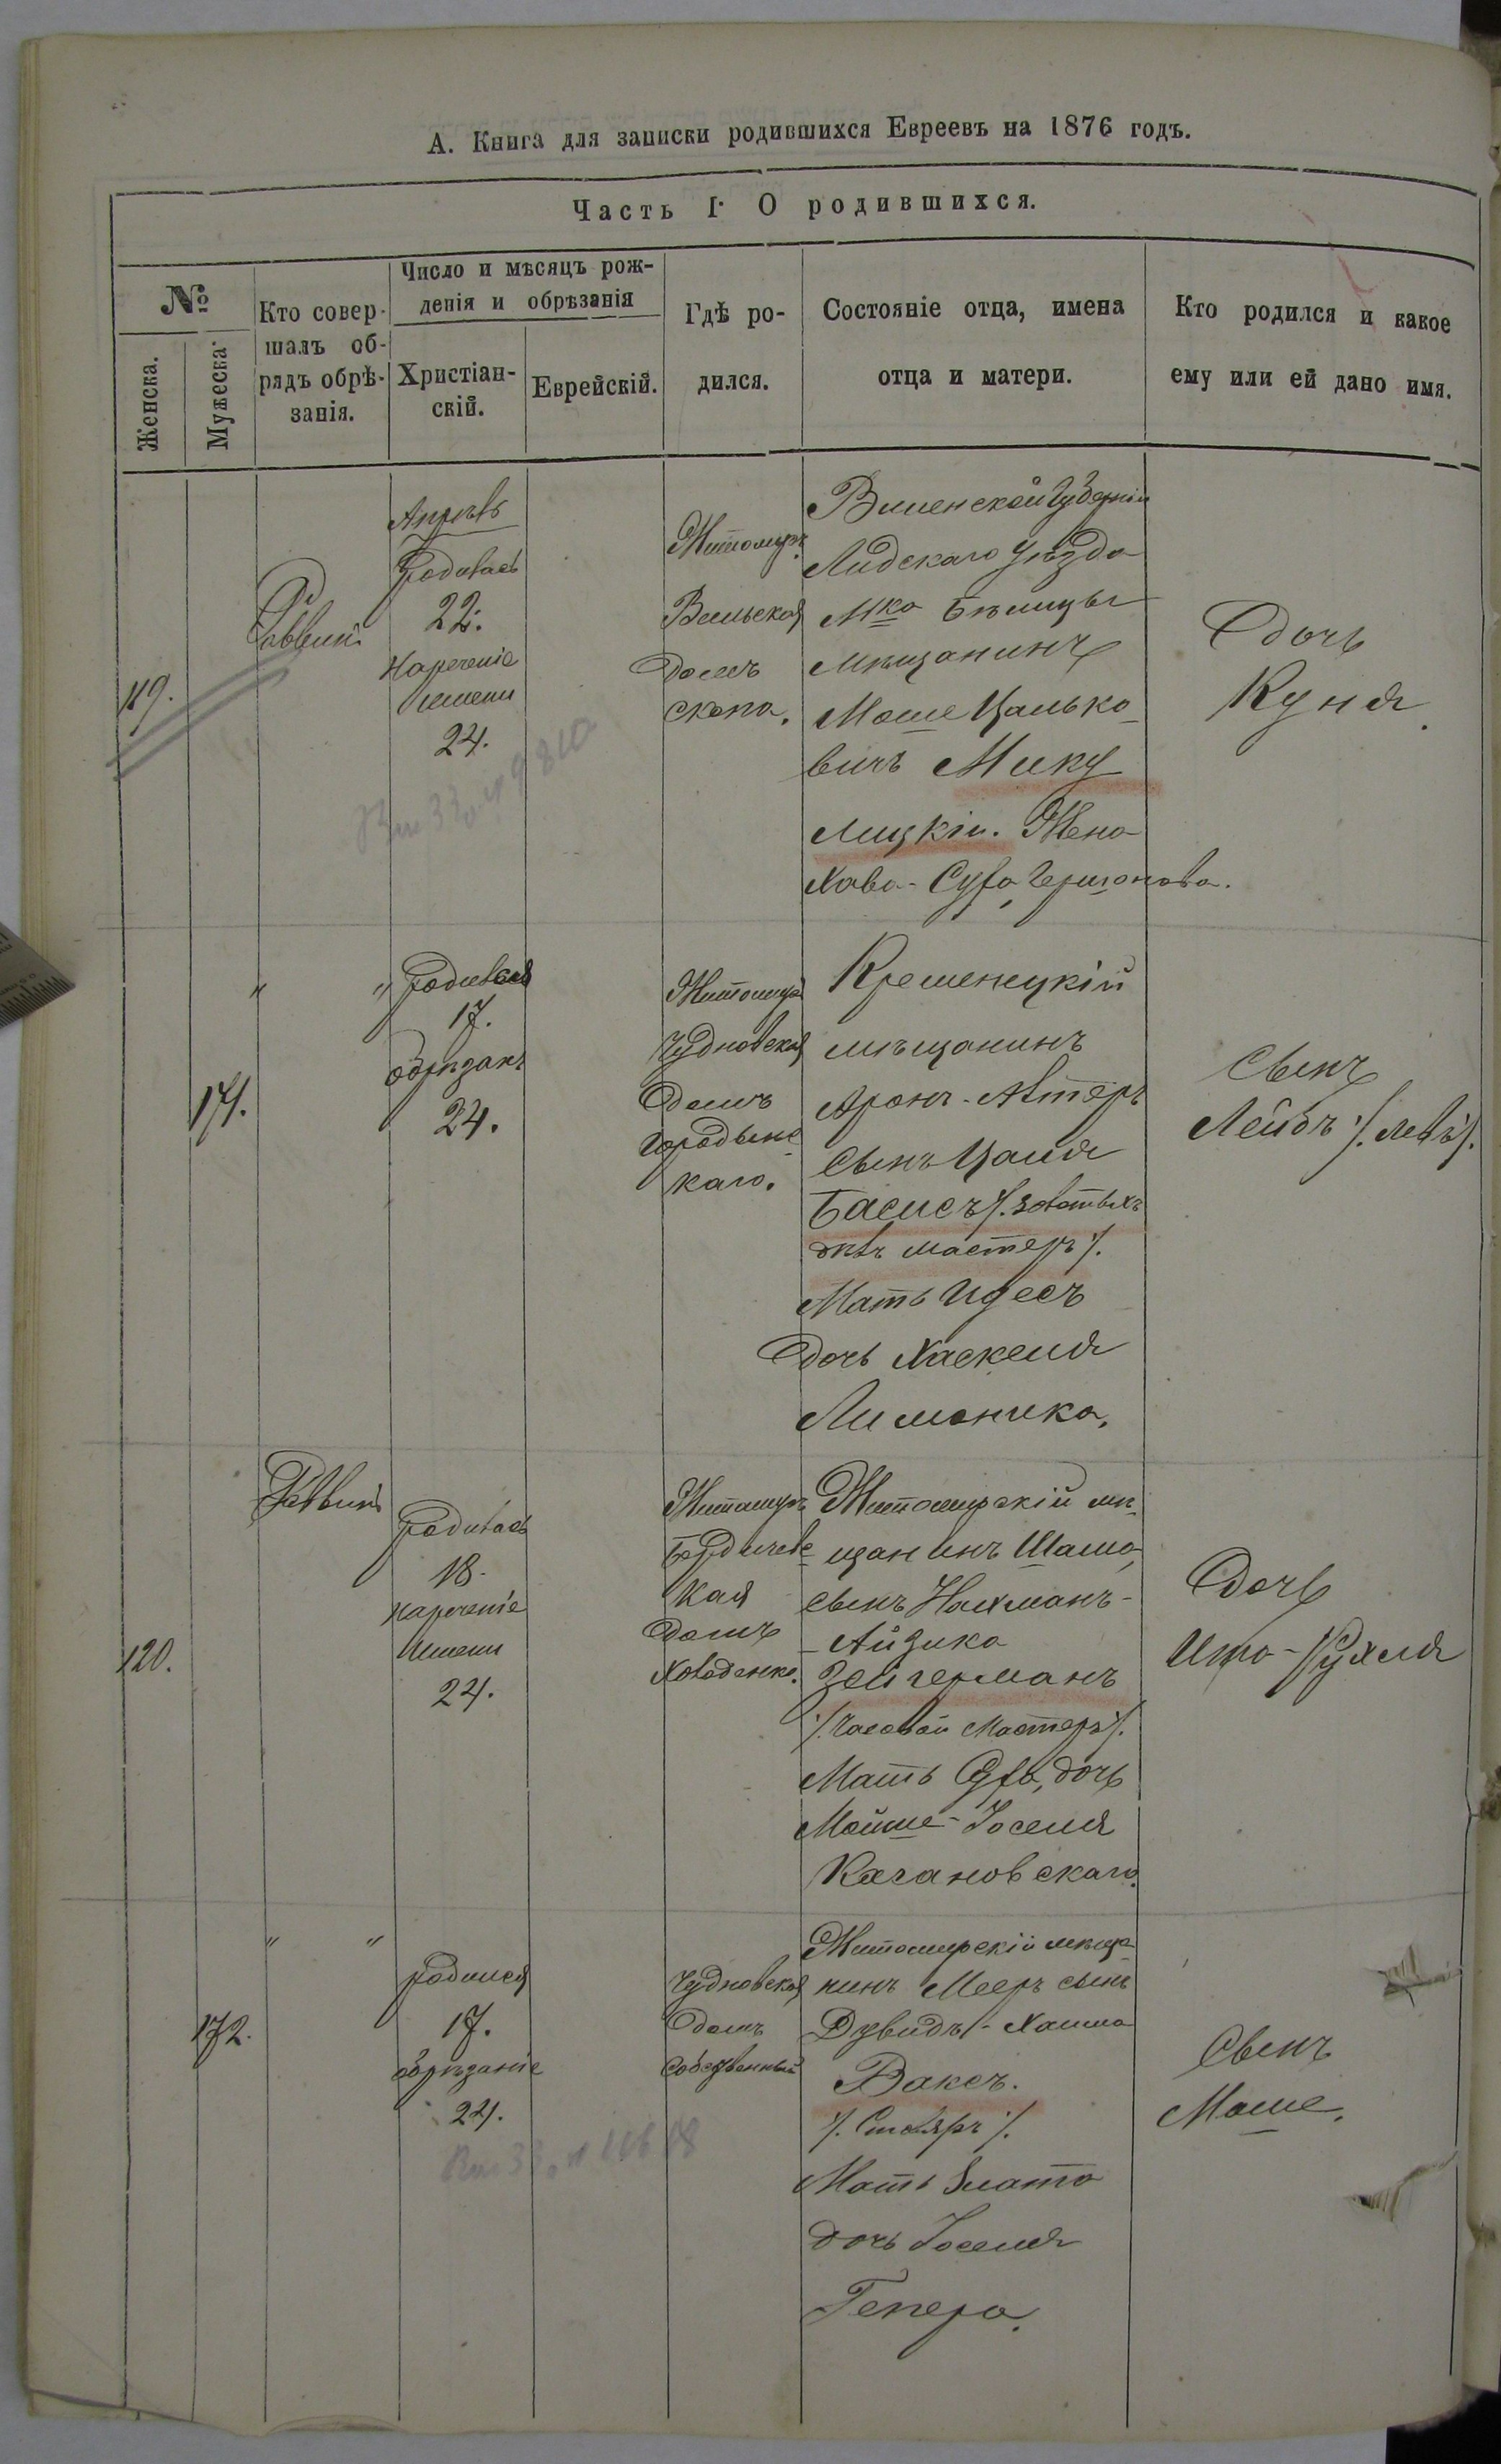 А. Книга для записки родившихся Евреевъ на 1876 годъ.
Часть I. О родившихся.
№
Женска.
Мужеска.
Кто совер-
шалъ об-
рядъ обрѣ-
занія.
Число и мѣсяцъ рож-
денія и обрѣзанія
Христіан-
скій.
Еврейскій.
Гдѣ ро-
дился.
Состояніе отца, имена
отца и матери.
Кто родился и какое
ему или ей дано имя.
119.
Раввинъ
Апрѣль
Родилась
22.
Нареченіе
имени
24.
Житомиръ
Вильская
Домъ
Виленской Губерніи
Лидскаго Уѣзда
Мка Бѣлицы
мѣщанинъ
Моше Цалько-
вичъ Мику
лицкій. Жена
Хава-Сура Гершонова.
Дочь
Куня.
171.
" "
Родился
17.
обрѣзанъ
24.
Житомиръ
Чудновская
Домъ
Городынс-
каго.
Кременецкій
мѣщанинъ
Аронъ-Алтеръ
Сынъ Цаля
Басисъ ./. золотыхъ
дѣлъ мастеръ ./.
Мать Идесъ
Дочь Хаскеля
Лиманика.
Сынъ
Лейбъ ./. Левъ ./.
120.
Раввинъ
Родилась
18.
нареченіе
Имени
24.
Житомиръ
Бердичевс-
кая
Домъ
Ховоденко.
Житомирскій мѣ-
щанинъ Шама,
сынъ Нахманъ-
-Айзика
Зейгерманъ
./. Часовой Мастеръ ./.
Мать Сура, дочь
Мойше-Іоселя
Качановскаго.
Дочь
Ита-Рухля
172.
" "
родился
17.
обрѣзаніе
24.
Чудновская
домъ
Собственный
Житомирскій мѣща-
нинъ Мееръ сынъ
Дувидъ-Хаима
Ваксъ.
./. Столяръ ./.
Мать Злата
дочь Іоселя
Генера.
Сынъ
Моше.